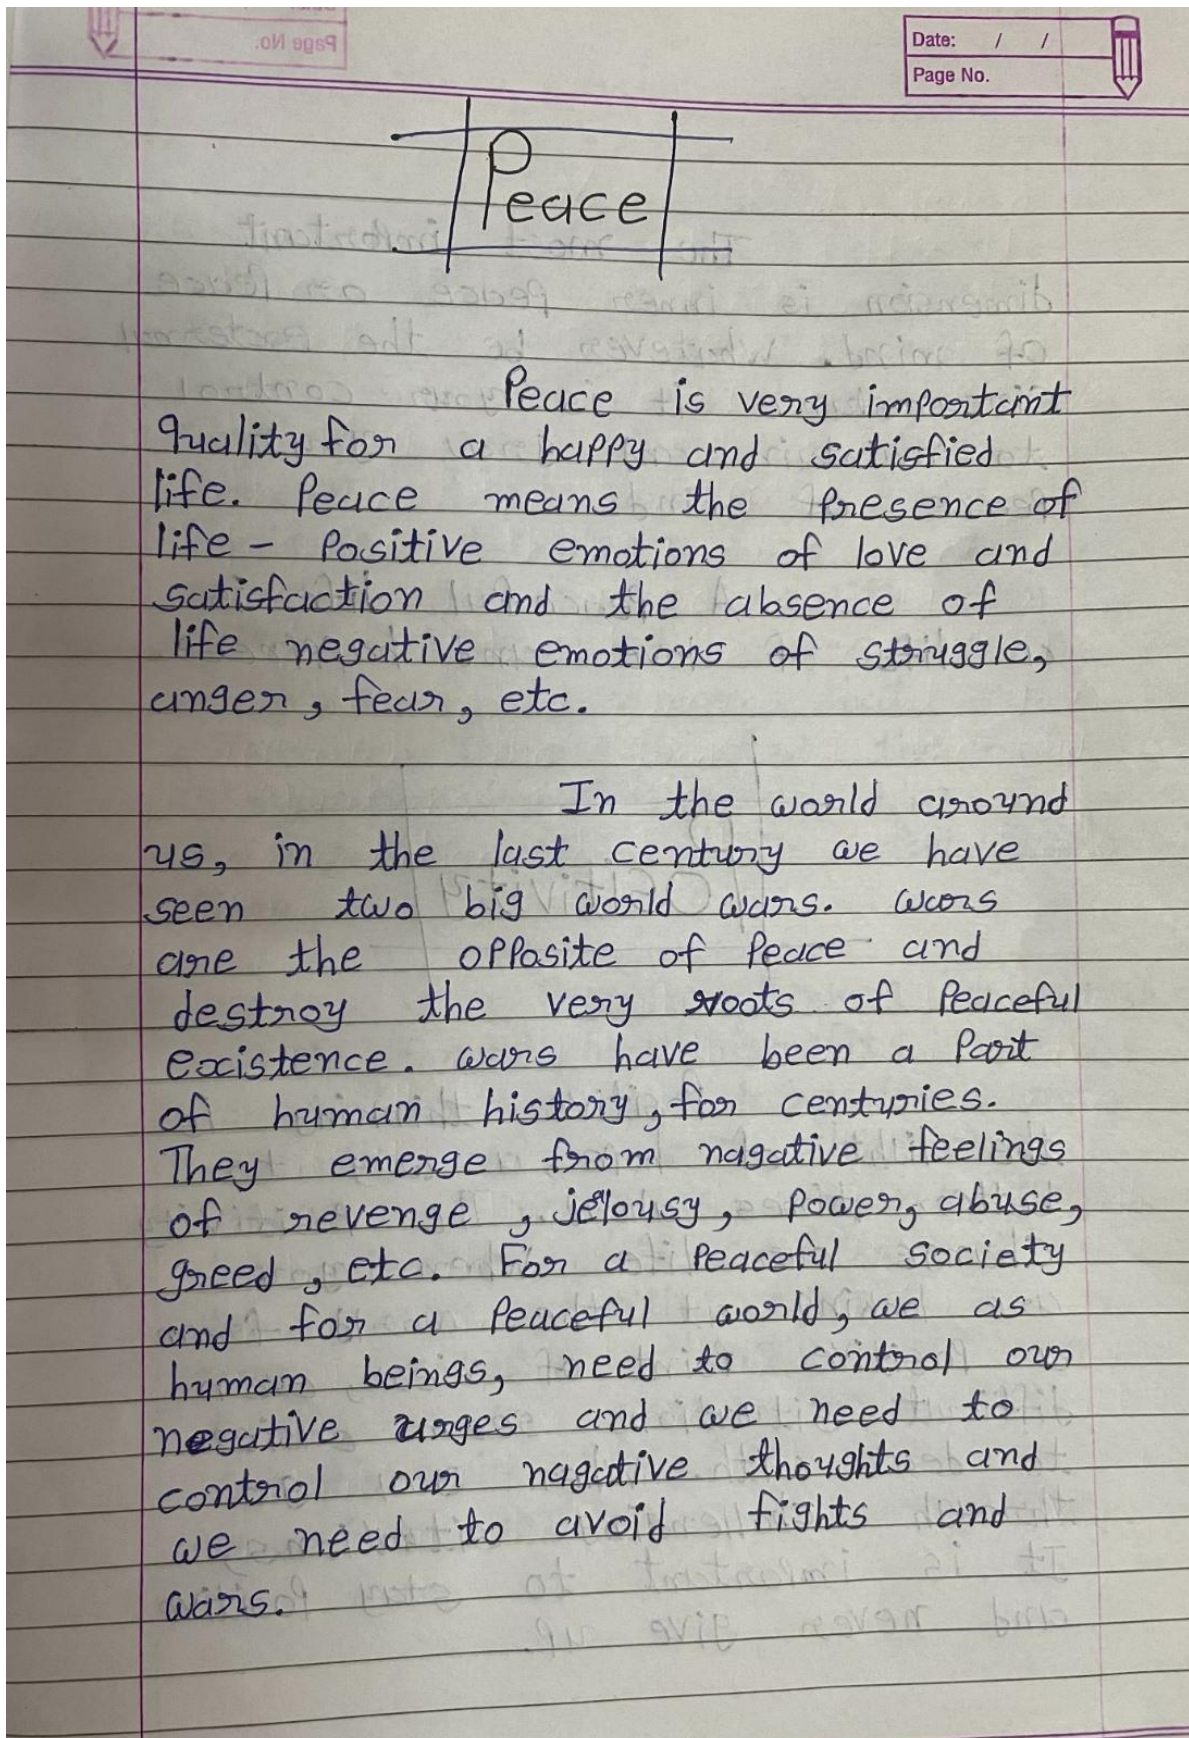 Page No.
Date: / /
Page No.
Peace
Peace is very important
quality for a happy and satisfied
life. Peace means the presence of
life - Positive emotions of love and
satisfaction and the absence of
life negative emotions of struggle,
anger, fear, etc.
In the world around
us, in the last century we have
seen two big world wars. wars
are the opposite of Peace and
destroy the very roots of Peaceful
existence. wars have been a Part
of human history, for centuries.
They emerge from nagative feelings
of revenge, jelousy, Power, abuse,
greed, etc. For a Peaceful society
and for a Peaceful world, we as
human beings, need to control our
negative urges and we need to
control our nagative thoughts and
we need to avoid fights and
wars.